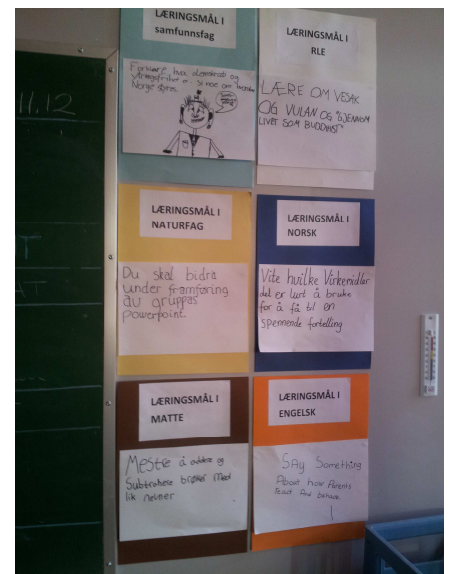 LÆRINGSMÅL I
samfunnsfag
Forklare hva demokrati og
ytringsfrihet er. Si noe om hvordan
Norge styres.
LÆRINGSMÅL I
RLE
LÆRE OM VESAK
OG VULAN OG "GJENNOM
LIVET SOM BUDDHIST"
11.12
LÆRINGSMÅL I
NATURFAG
Du skal bidra
under framføring
av gruppas
powerpoint.
LÆRINGSMÅL I
NORSK
Vite hvilke Virkemidler
det er lurt å bruke
for å få til en
spennende fortelling
LÆRINGSMÅL I
MATTE
Mestre å addere og
Subtrahere brøker med
lik nevner
LÆRINGSMÅL I
ENGELSK
Say Something
About how Parents
React And behave